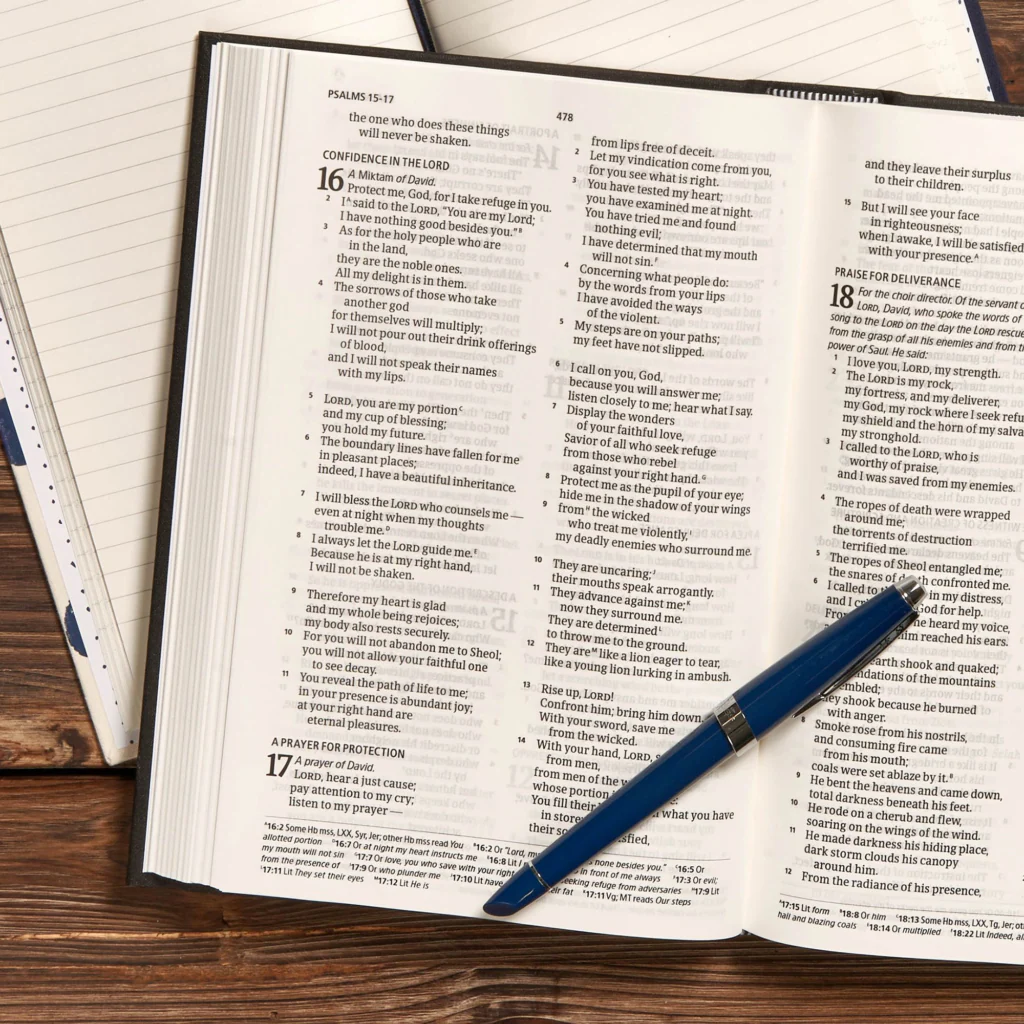 PSALMS 15-17
478
the one who does these things
will never be shaken.
CONFIDENCE IN THE LORD
16 A Miktam of David.
Protect me, God, for I take refuge in you.
2 I^A said to the LORD, "You are my Lord;
I have nothing good besides you."^B
3 As for the holy people who are
in the land,
they are the noble ones.
All my delight is in them.
4 The sorrows of those who take
another god
for themselves will multiply;
I will not pour out their drink offerings
of blood,
and I will not speak their names
with my lips.
5 LORD, you are my portion^C
and my cup of blessing;
you hold my future.
6 The boundary lines have fallen for me
in pleasant places;
indeed, I have a beautiful inheritance.
7 I will bless the LORD who counsels me —
even at night when my thoughts
trouble me.^D
8 I always let the LORD guide me.^E
Because he is at my right hand,
I will not be shaken.
9 Therefore my heart is glad
and my whole being rejoices;
my body also rests securely.
10 For you will not abandon me to Sheol;
you will not allow your faithful one
to see decay.
11 You reveal the path of life to me;
in your presence is abundant joy;
at your right hand are
eternal pleasures.
A PRAYER FOR PROTECTION
17 A prayer of David.
LORD, hear a just cause;
pay attention to my cry;
listen to my prayer —
from lips free of deceit.
2 Let my vindication come from you,
for you see what is right.
3 You have tested my heart;
you have examined me at night.
You have tried me and found
nothing evil;
I have determined that my mouth
will not sin.^F
4 Concerning what people do:
by the words from your lips
I have avoided the ways
of the violent.
5 My steps are on your paths;
my feet have not slipped.
6 I call on you, God,
because you will answer me;
listen closely to me; hear what I say.
7 Display the wonders
of your faithful love,
Savior of all who seek refuge
from those who rebel
against your right hand.^G
8 Protect me as the pupil of your eye;
hide me in the shadow of your wings
9 from^H the wicked
who treat me violently,^I
my deadly enemies who surround me.
10 They are uncaring;^J
their mouths speak arrogantly.
11 They advance against me;^K
now they surround me.
They are determined^L
to throw me to the ground.
12 They are^M like a lion eager to tear,
like a young lion lurking in ambush.
13 Rise up, LORD!
Confront him; bring him down.
With your sword, save me
from the wicked.
14 With your hand, LORD,
from men,
from men of the
whose portion
You fill their what you have
in store
their
^A16:2 Some Hb mss, LXX, Syr, Jer; other Hb mss read You ^B16:2 Or "Lord, my none besides you." ^C16:5 Or
allotted portion ^D16:7 Or at night my heart instructs me ^E16:8 Lit in front of me always ^F17:3 Or evil;
my mouth will not sin ^G17:7 Or love, you who save with your right seeking refuge from adversaries ^H17:9 Lit
from the presence of ^I17:9 Or who plunder me ^J17:10 Lit have their fat ^K17:11 Vg; MT reads Our steps
^L17:11 Lit They set their eyes ^M17:12 Lit He is
and they leave their surplus
to their children.
15 But I will see your face
in righteousness;
when I awake, I will be satisfied
with your presence.^A
PRAISE FOR DELIVERANCE
18 For the choir director. Of the servant
LORD, David, who spoke the words of
song to the LORD on the day the LORD
from the grasp of all his enemies and from
power of Saul. He said:
1 I love you, LORD, my strength.
2 The LORD is my rock,
my fortress, and my deliverer,
my God, my rock where I seek
my shield and the horn of my
my stronghold.
3 I called to the LORD, who is
worthy of praise,
and I was saved from my enemies.
4 The ropes of death were wrapped
around me;
the torrents of destruction
terrified me.
5 The ropes of Sheol entangled me;
the snares of confronted me.
6 I called to in my distress,
and I God for help.
he heard my voice,
reached his ears.
earth shook and quaked;
of the mountains
shook because he burned
with anger.
8 Smoke rose from his nostrils,
and consuming fire came
from his mouth;
coals were set ablaze by it.^B
9 He bent the heavens and came down,
total darkness beneath his feet.
10 He rode on a cherub and flew,
soaring on the wings of the wind.
11 He made darkness his hiding place,
dark storm clouds his canopy
around him.
12 From the radiance of his presence,
^A17:15 Lit form ^B18:8 Or him ^C18:13 Some Hb mss, LXX, Tg, Jer;
hail and blazing coals ^D18:14 Or multiplied ^E18:22 Lit Indeed,